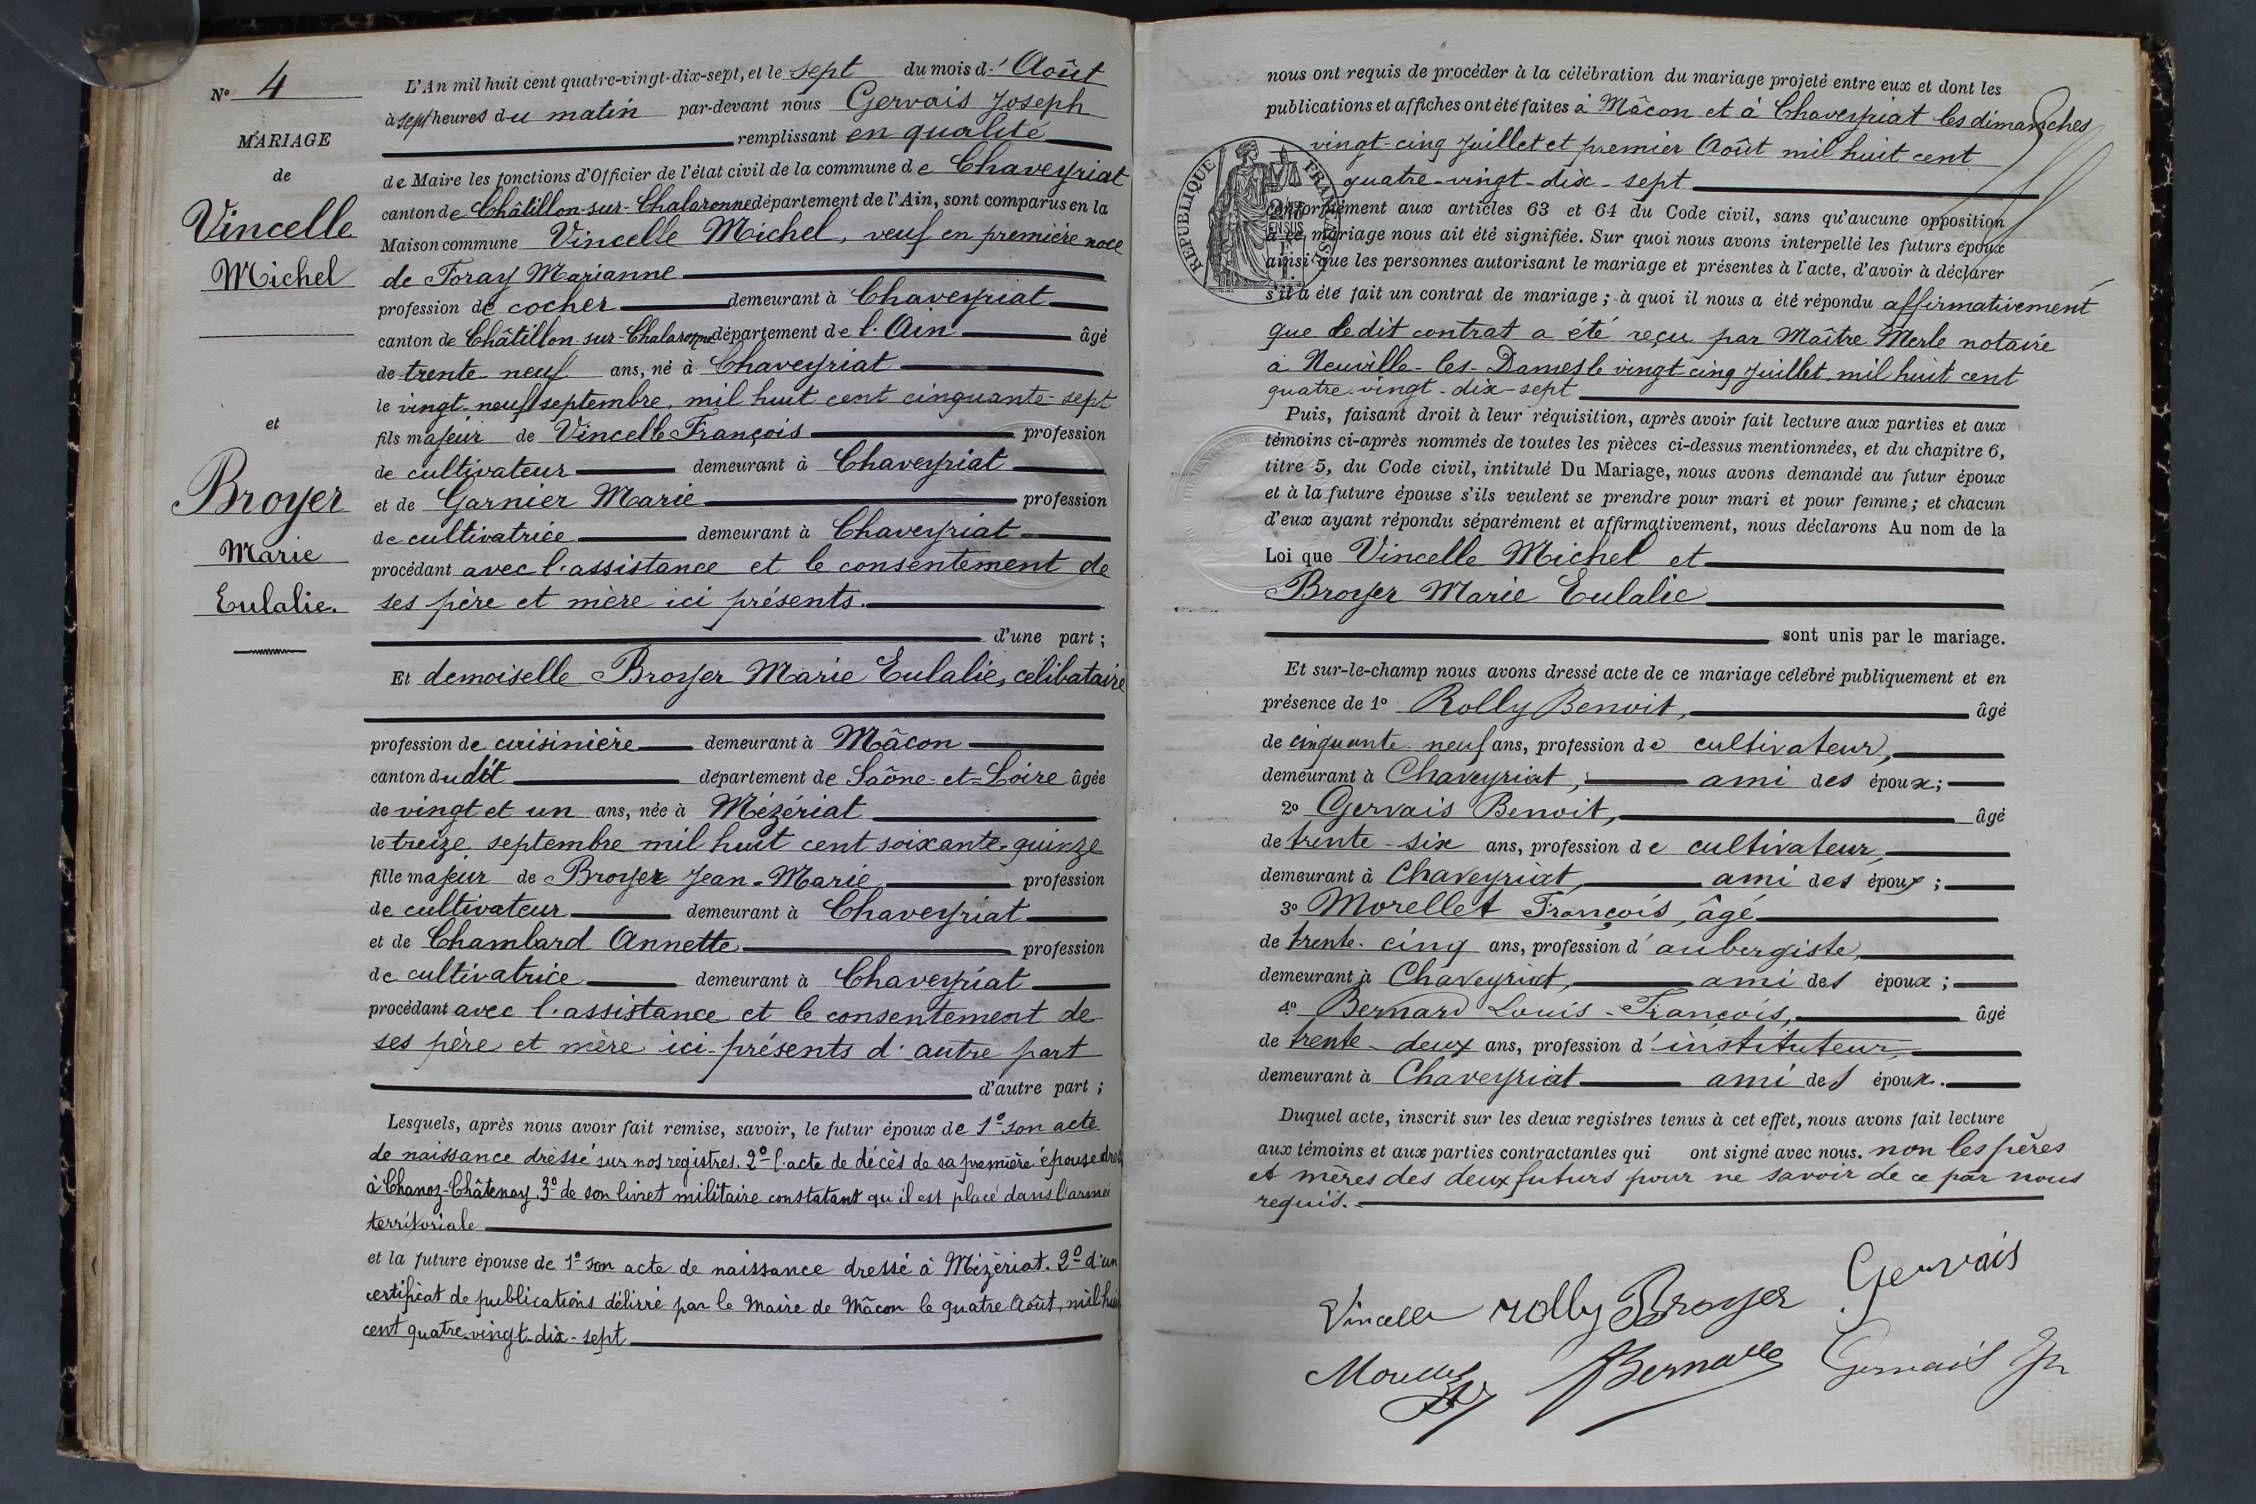 N° 4
MARIAGE
de
Vincelle
Michel
et
Broyer
Marie
Eulalie.
L'An mil huit cent quatre-vingt-dix-sept, et le sept du mois d' Août
à sept heures du matin par-devant nous Gervais Joseph
remplissant en qualité
de Maire les fonctions d'Officier de l'état civil de la commune de Chaveyriat
canton de Châtillon-sur-Chalaronne département de l'Ain, sont comparus en la
Maison commune Vincelle Michel, veuf en première noce
de Foray Marianne
profession de cocher demeurant à Chaveyriat
canton de Châtillon-sur-Chalaronne département de l'Ain âgé
de trente neuf ans, né à Chaveyriat
le vingt-neuf septembre, mil huit cent cinquante-sept
fils majeur de Vincelle François profession
de cultivateur demeurant à Chaveyriat
et de Garnier Marie profession
de cultivatrice demeurant à Chaveyriat
procédant avec l'assistance et le consentement de
ses père et mère ici présents.
d'une part ;
Et demoiselle Broyer Marie Eulalie, célibataire
profession de cuisinière demeurant à Mâcon
canton dudit département de Saône-et-Loire âgée
de vingt et un ans, née à Mézériat
le treize septembre mil huit cent soixante-quinze
fille majeur de Broyer Jean-Marie profession
de cultivateur demeurant à Chaveyriat
et de Chambard Annette profession
de cultivatrice demeurant à Chaveyriat
procédant avec l'assistance et le consentement de
ses père et mère ici-présents d'autre part
d'autre part ;
Lesquels, après nous avoir fait remise, savoir, le futur époux de 1° son acte
de naissance dressé sur nos registres. 2° l'acte de décès de sa première épouse
à Chanoz-Châtenay 3° de son livret militaire constatant qu'il est placé dans l'armée
territoriale
et la future épouse de 1° son acte de naissance dressé à Mézériat. 2° d'un
certificat de publications délivré par le Maire de Mâcon le quatre Août, mil huit
cent quatre-vingt-dix-sept
nous ont requis de procéder à la célébration du mariage projeté entre eux et dont les
publications et affiches ont été faites à Mâcon et à Chaveyriat les dimanches
vingt-cinq Juillet et premier Août mil huit cent
quatre-vingt-dix-sept
RÉPUBLIQUE FRANÇAISE
conformément aux articles 63 et 64 du Code civil, sans qu'aucune opposition
à ce mariage nous ait été signifiée. Sur quoi nous avons interpellé les futurs époux
ainsi que les personnes autorisant le mariage et présentes à l'acte, d'avoir à déclarer
s'il a été fait un contrat de mariage ; à quoi il nous a été répondu affirmativement
que ledit contrat a été reçu par Maître Merle notaire
à Neuville-les-Dames le vingt cinq Juillet mil huit cent
quatre-vingt-dix-sept
Puis, faisant droit à leur réquisition, après avoir fait lecture aux parties et aux
témoins ci-après nommés de toutes les pièces ci-dessus mentionnées, et du chapitre 6,
titre 5, du Code civil, intitulé Du Mariage, nous avons demandé au futur époux
et à la future épouse s'ils veulent se prendre pour mari et pour femme ; et chacun
d'eux ayant répondu séparément et affirmativement, nous déclarons Au nom de la
Loi que Vincelle Michel et
Broyer Marie Eulalie
sont unis par le mariage.
Et sur-le-champ nous avons dressé acte de ce mariage célébré publiquement et en
présence de 1° Rolly Benoit, âgé
de cinquante neuf ans, profession de cultivateur,
demeurant à Chaveyriat, ami des époux ;
2° Gervais Benoit, âgé
de trente-six ans, profession de cultivateur,
demeurant à Chaveyriat, ami des époux ;
3° Morellet François, âgé
de trente-cinq ans, profession d'aubergiste,
demeurant à Chaveyriat, ami des époux ;
4° Bernard Louis-François, âgé
de trente-deux ans, profession d'instituteur,
demeurant à Chaveyriat ami des époux.
Duquel acte, inscrit sur les deux registres tenus à cet effet, nous avons fait lecture
aux témoins et aux parties contractantes qui ont signé avec nous. non les pères
et mères des deux futurs pour ne savoir de ce par nous
requis.
Vincelle Rolly Broyer Gervais
Bernard Gervais